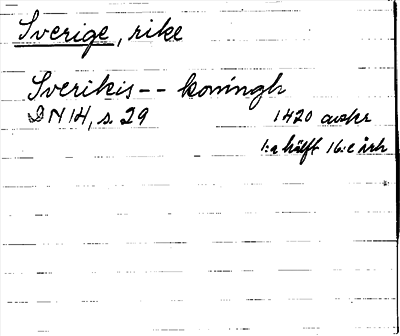 Sverige, rike
Sverikis -- konungh
DN 14, s. 29 1420 avskr
1:a hälft 16:e årh